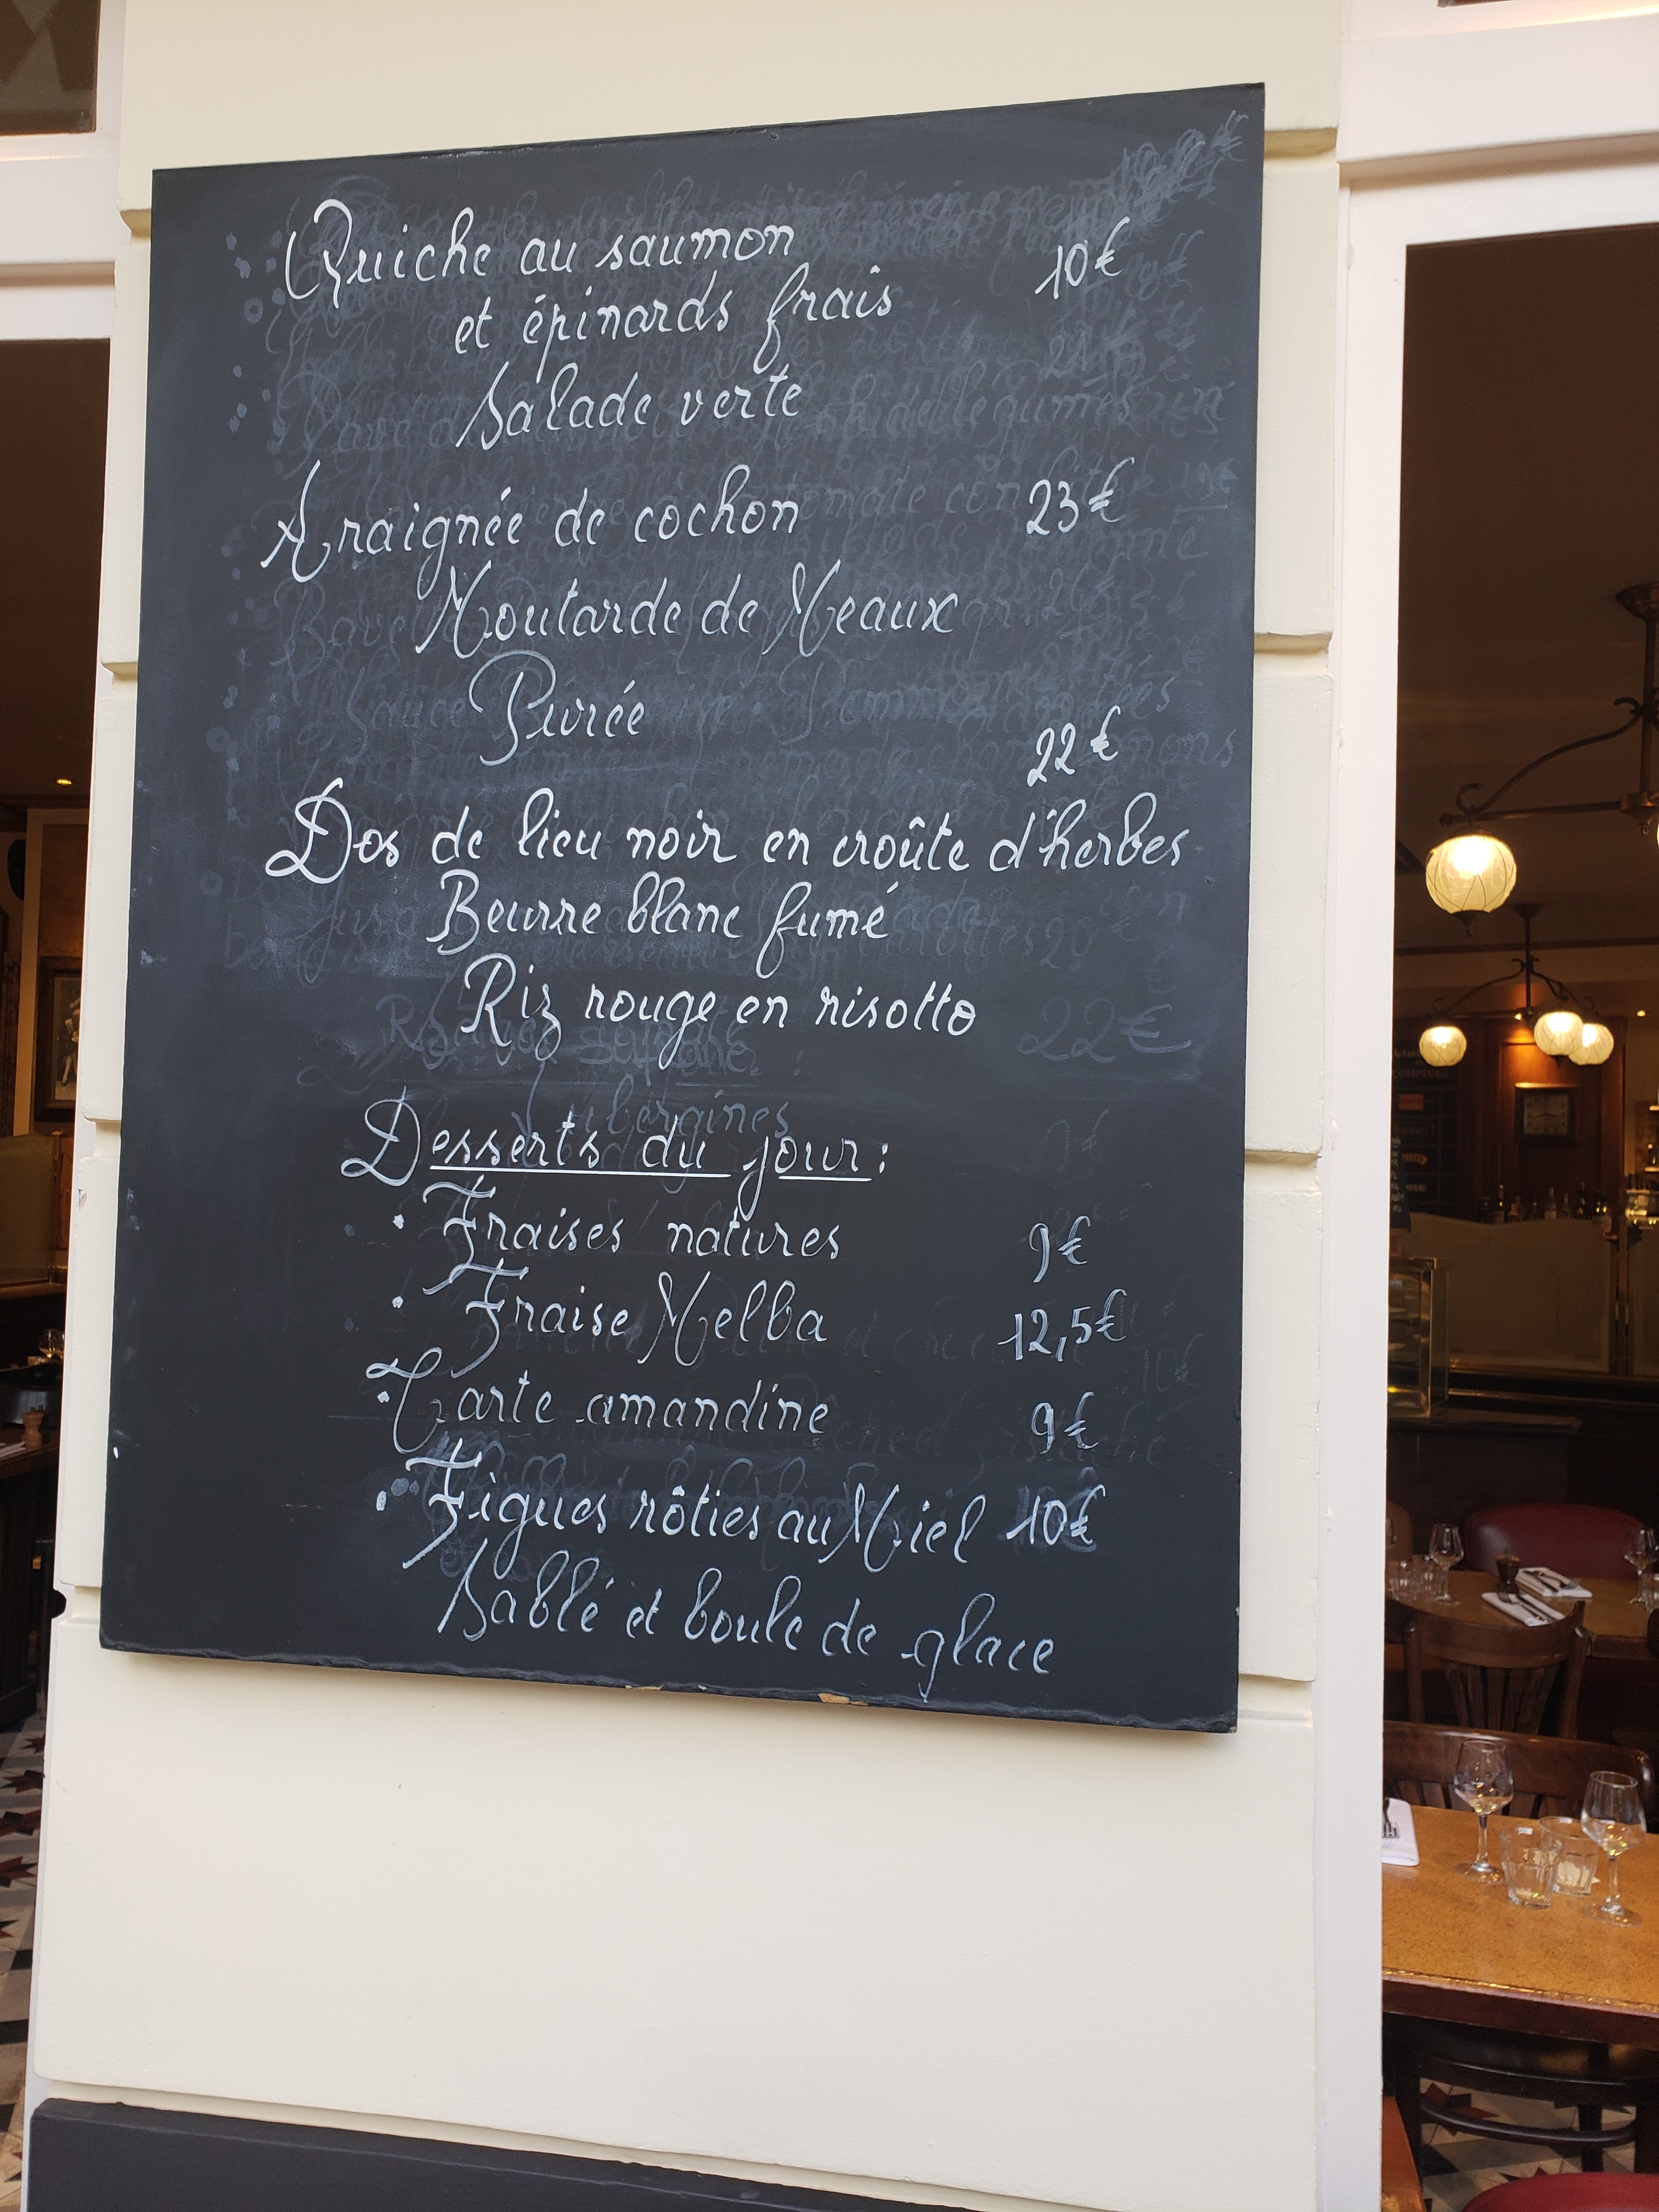 Quiche au saumon 10€
et épinards frais
Salade verte
Araignée de cochon 23€
Moutarde de Meaux
Purée
22€
Dos de lieu noir en croûte d'herbes
Beurre blanc fumé
Riz rouge en risotto
Desserts du jour :
· Fraises natures 9€
· Fraise Melba 12,5€
· Tarte amandine 9€
· Figues rôties au Miel 10€
Sablé et boule de glace